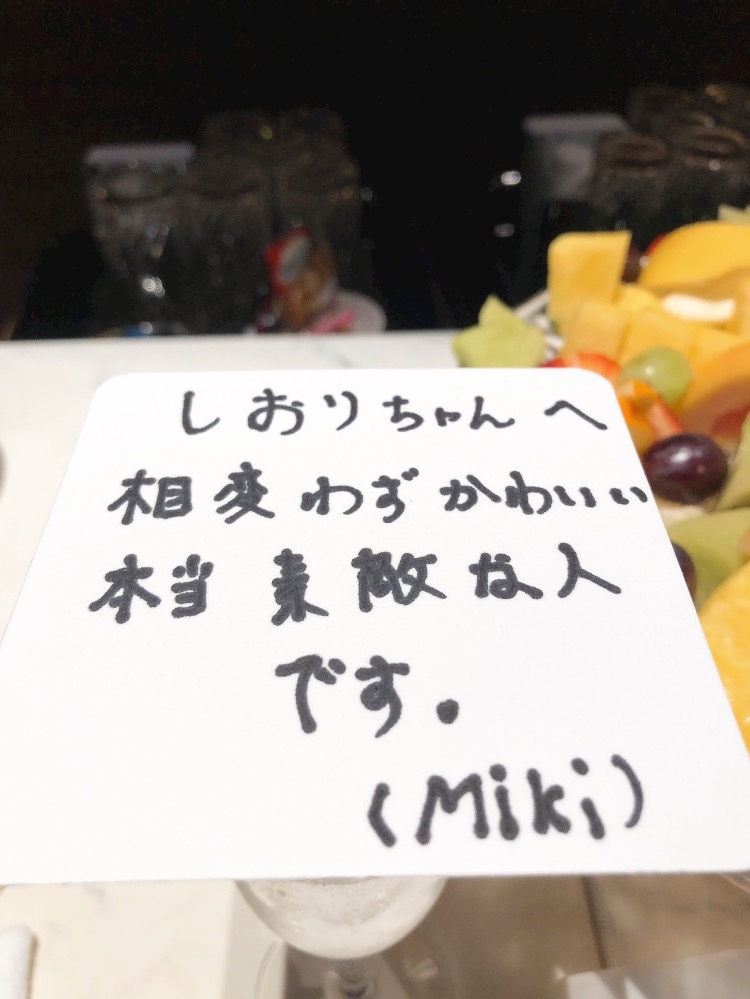 しおりちゃんへ
相変わずかわいい
本当素敵な人
です。
(Miki)